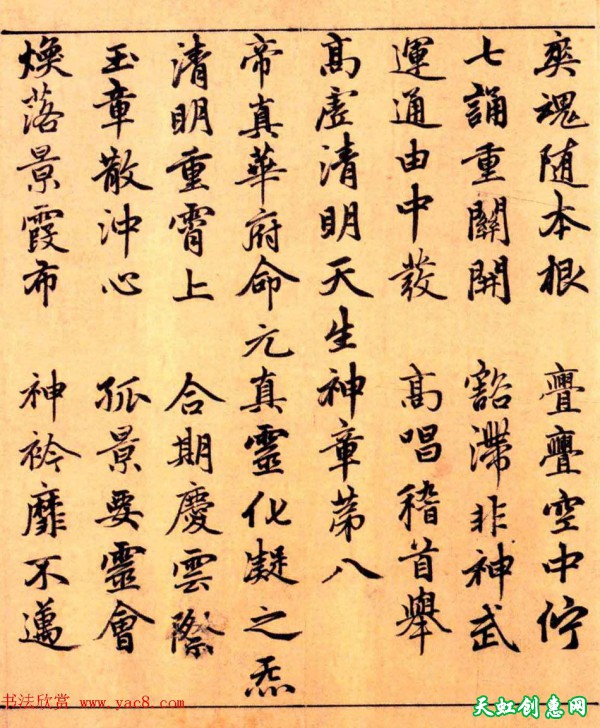 爽魂随本根 亹亹空中佇
七誦重關開 豁滯非神武
運通由中發 高唱稽首舉
高虛清明天生神章第八
帝真華府命元真靈化凝之炁
清明重霄上 合期慶雲際
玉章散沖心 孤景要靈會
煥落景霞布 神衿靡不邁
书法欣赏 www.yac8.com
天虹创惠网